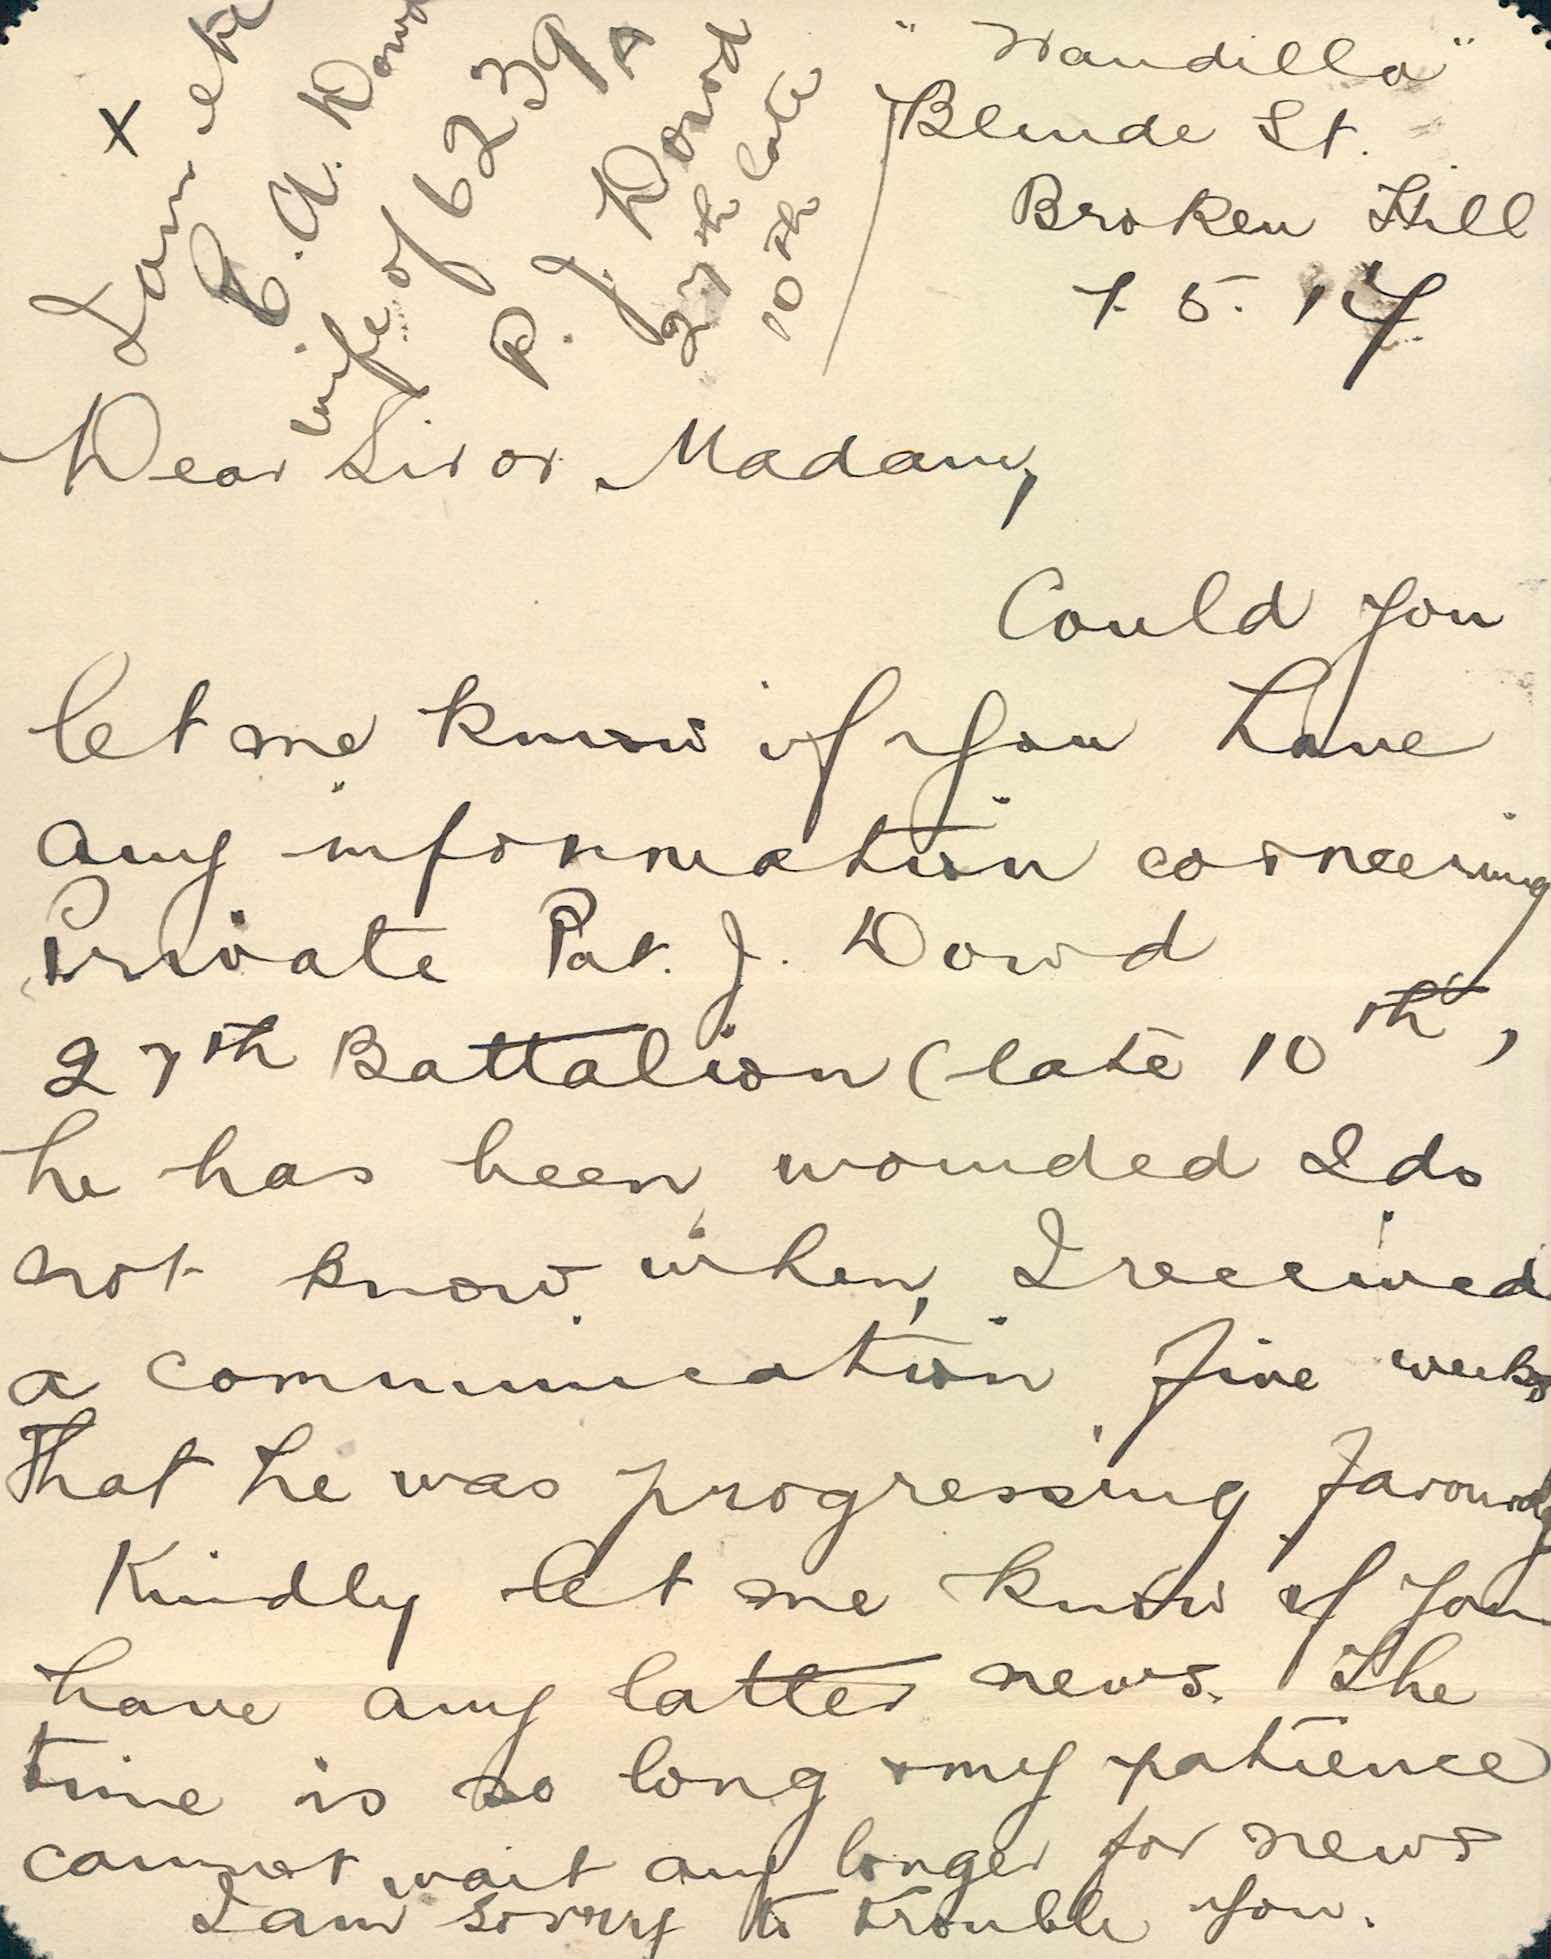 "Wandilla"
Blende St.
Broken Hill
7. 5. 17
Dear Sir or Madam,
Could you
let me know if you have
any information corncerning
Private Pat. J. Dowd
27th Battalion (late 10th,
he has been wounded I do
not know when, I received
a communication five weeks
that he was progressing favourably
Kindly let me know if you
have any latter news. The
time is so long & my patience
cannot wait any longer for news
I am sorry to trouble you.
I am etc
C. A. Dowd
wife of 6239 A
P. J. Dowd
27th late
10th
x